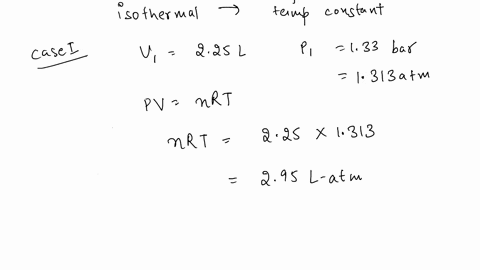 isothermal → temp constant
Case I V₁ = 2.25 L P₁ = 1.33 bar
= 1.313 atm
PV = nRT
nRT = 2.25 × 1.313
= 2.95 L-atm